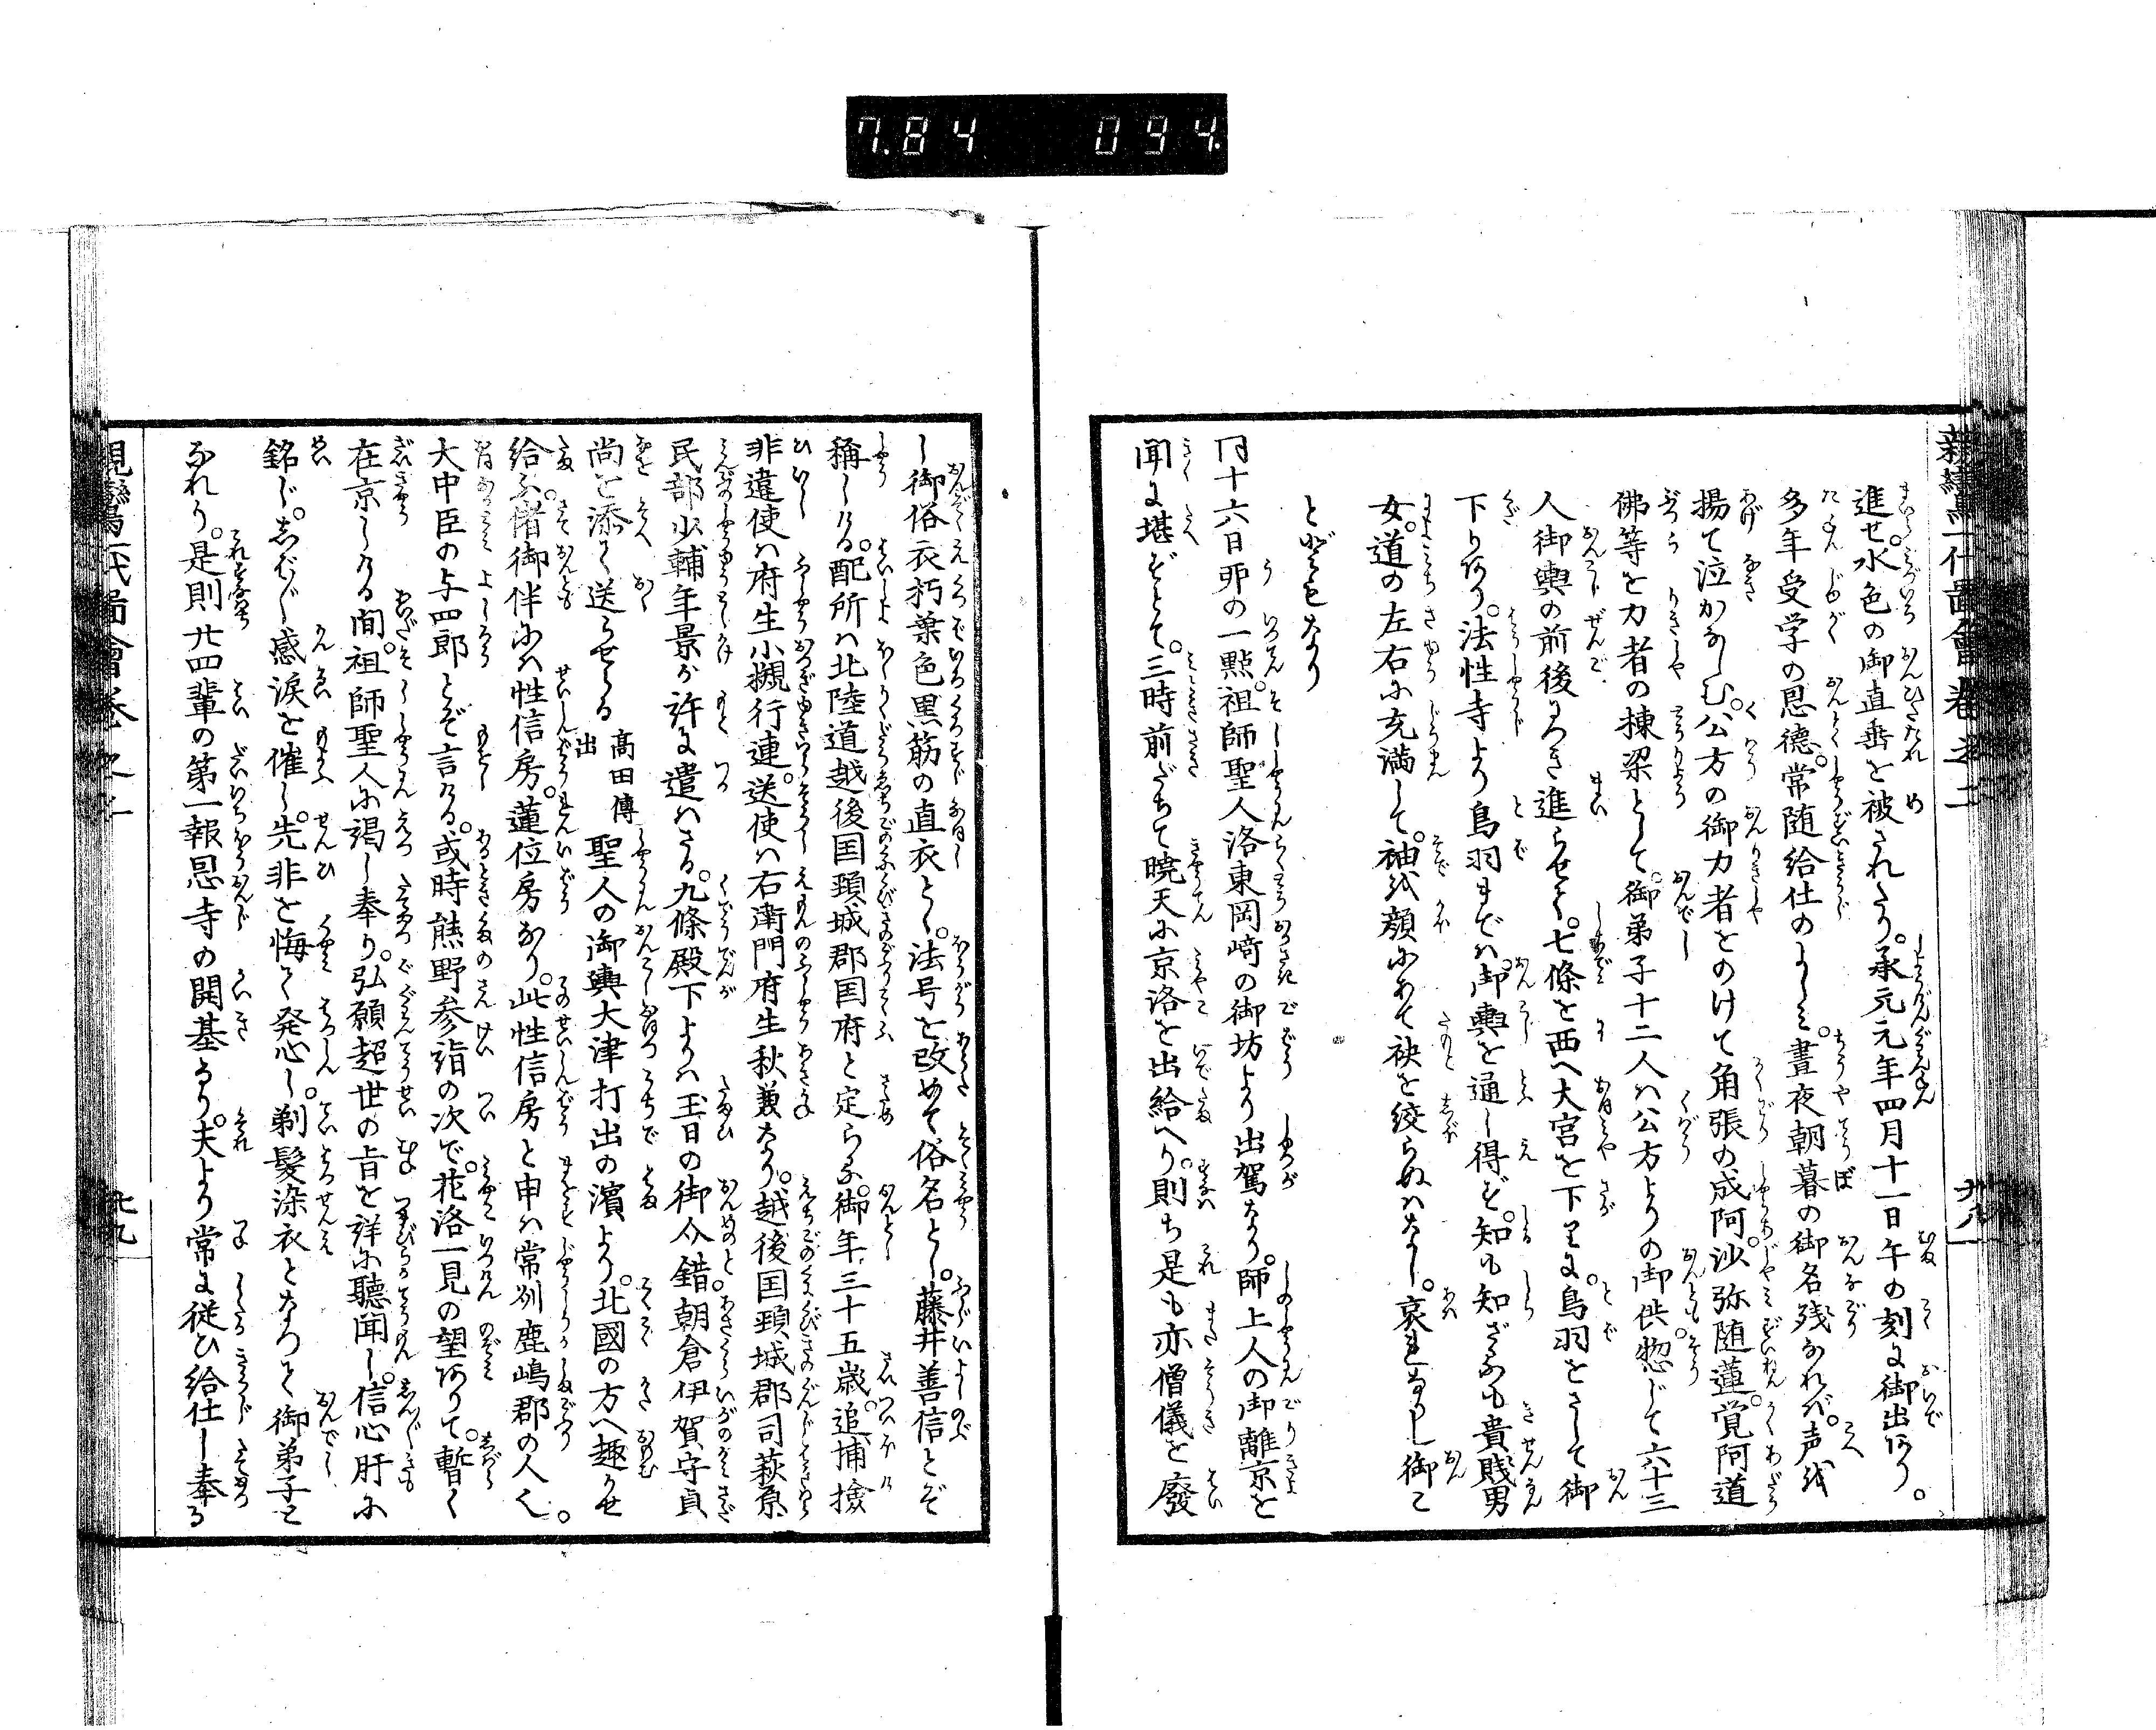 7.84 094.
親鸞一代圖會巻之二 廿八
進せ。水色の御直垂を被されたり。承元元年四月十一日午の刻に御出あり。
多年受学の恩徳。常随給仕のよしミ。昼夜朝暮の御名残なれバ。声を
揚て泣かなしむ。公方の御力者をのけて角張の成阿。沙弥随蓮。覚阿道
佛等を力者の棟梁として。御弟子十二人ハ公方よりの御供。惣じて六十三
人御輿の前後につき進らせて。七條を西へ大宮を下りに。鳥羽をさして御
下りあり。法性寺より鳥羽までハ。御輿を通し得ず。知も知ざるも貴賤男
女。道の左右に充満して。袖を顔にあて袂を絞らぬハなし。哀れなりし御こ
とどもなり
同十六日卯の一點。祖師聖人洛東岡﨑の御坊より出駕なり。師上人の御離京を
聞に堪ずとて。三時前だちて暁天に京洛を出給へり。則ち是も亦僧儀を廢
し御俗衣朽葉色黒筋の直衣とし。法号を改めて俗名とし。藤井善信とぞ
稱しける。配所ハ北陸道越後国頚城郡国府と定らる。御年三十五歳。追捕撿
非違使ハ府生小槻行連。送使ハ右衛門府生秋兼なり。越後国頚城郡司萩原
民部少輔年景が許に遣ハさる。九條殿下よりハ玉日の御介錯。朝倉伊賀守貞
尚を添て送らせらる 高田傳出 聖人の御輿大津打出の濱より。北國の方へ趣かせ
給ふ。偖御伴にハ性信房。蓮位房なり。此性信房と申ハ常州鹿嶋郡の人也。
大中臣の与四郎とぞ言ける。或時熊野参詣の次で。花洛一見の望ありて。暫く
在京しける間。祖師聖人に謁し奉り。弘願超世の旨を詳に聴聞し。信心肝に
銘じ。しばしば感涙を催し。先非を悔て発心し。剃髪染衣となつて御弟子と
なれり。是則廿四輩の第一報恩寺の開基なり。夫より常に従ひ給仕し奉る
親鸞一代圖會巻之二 廿九